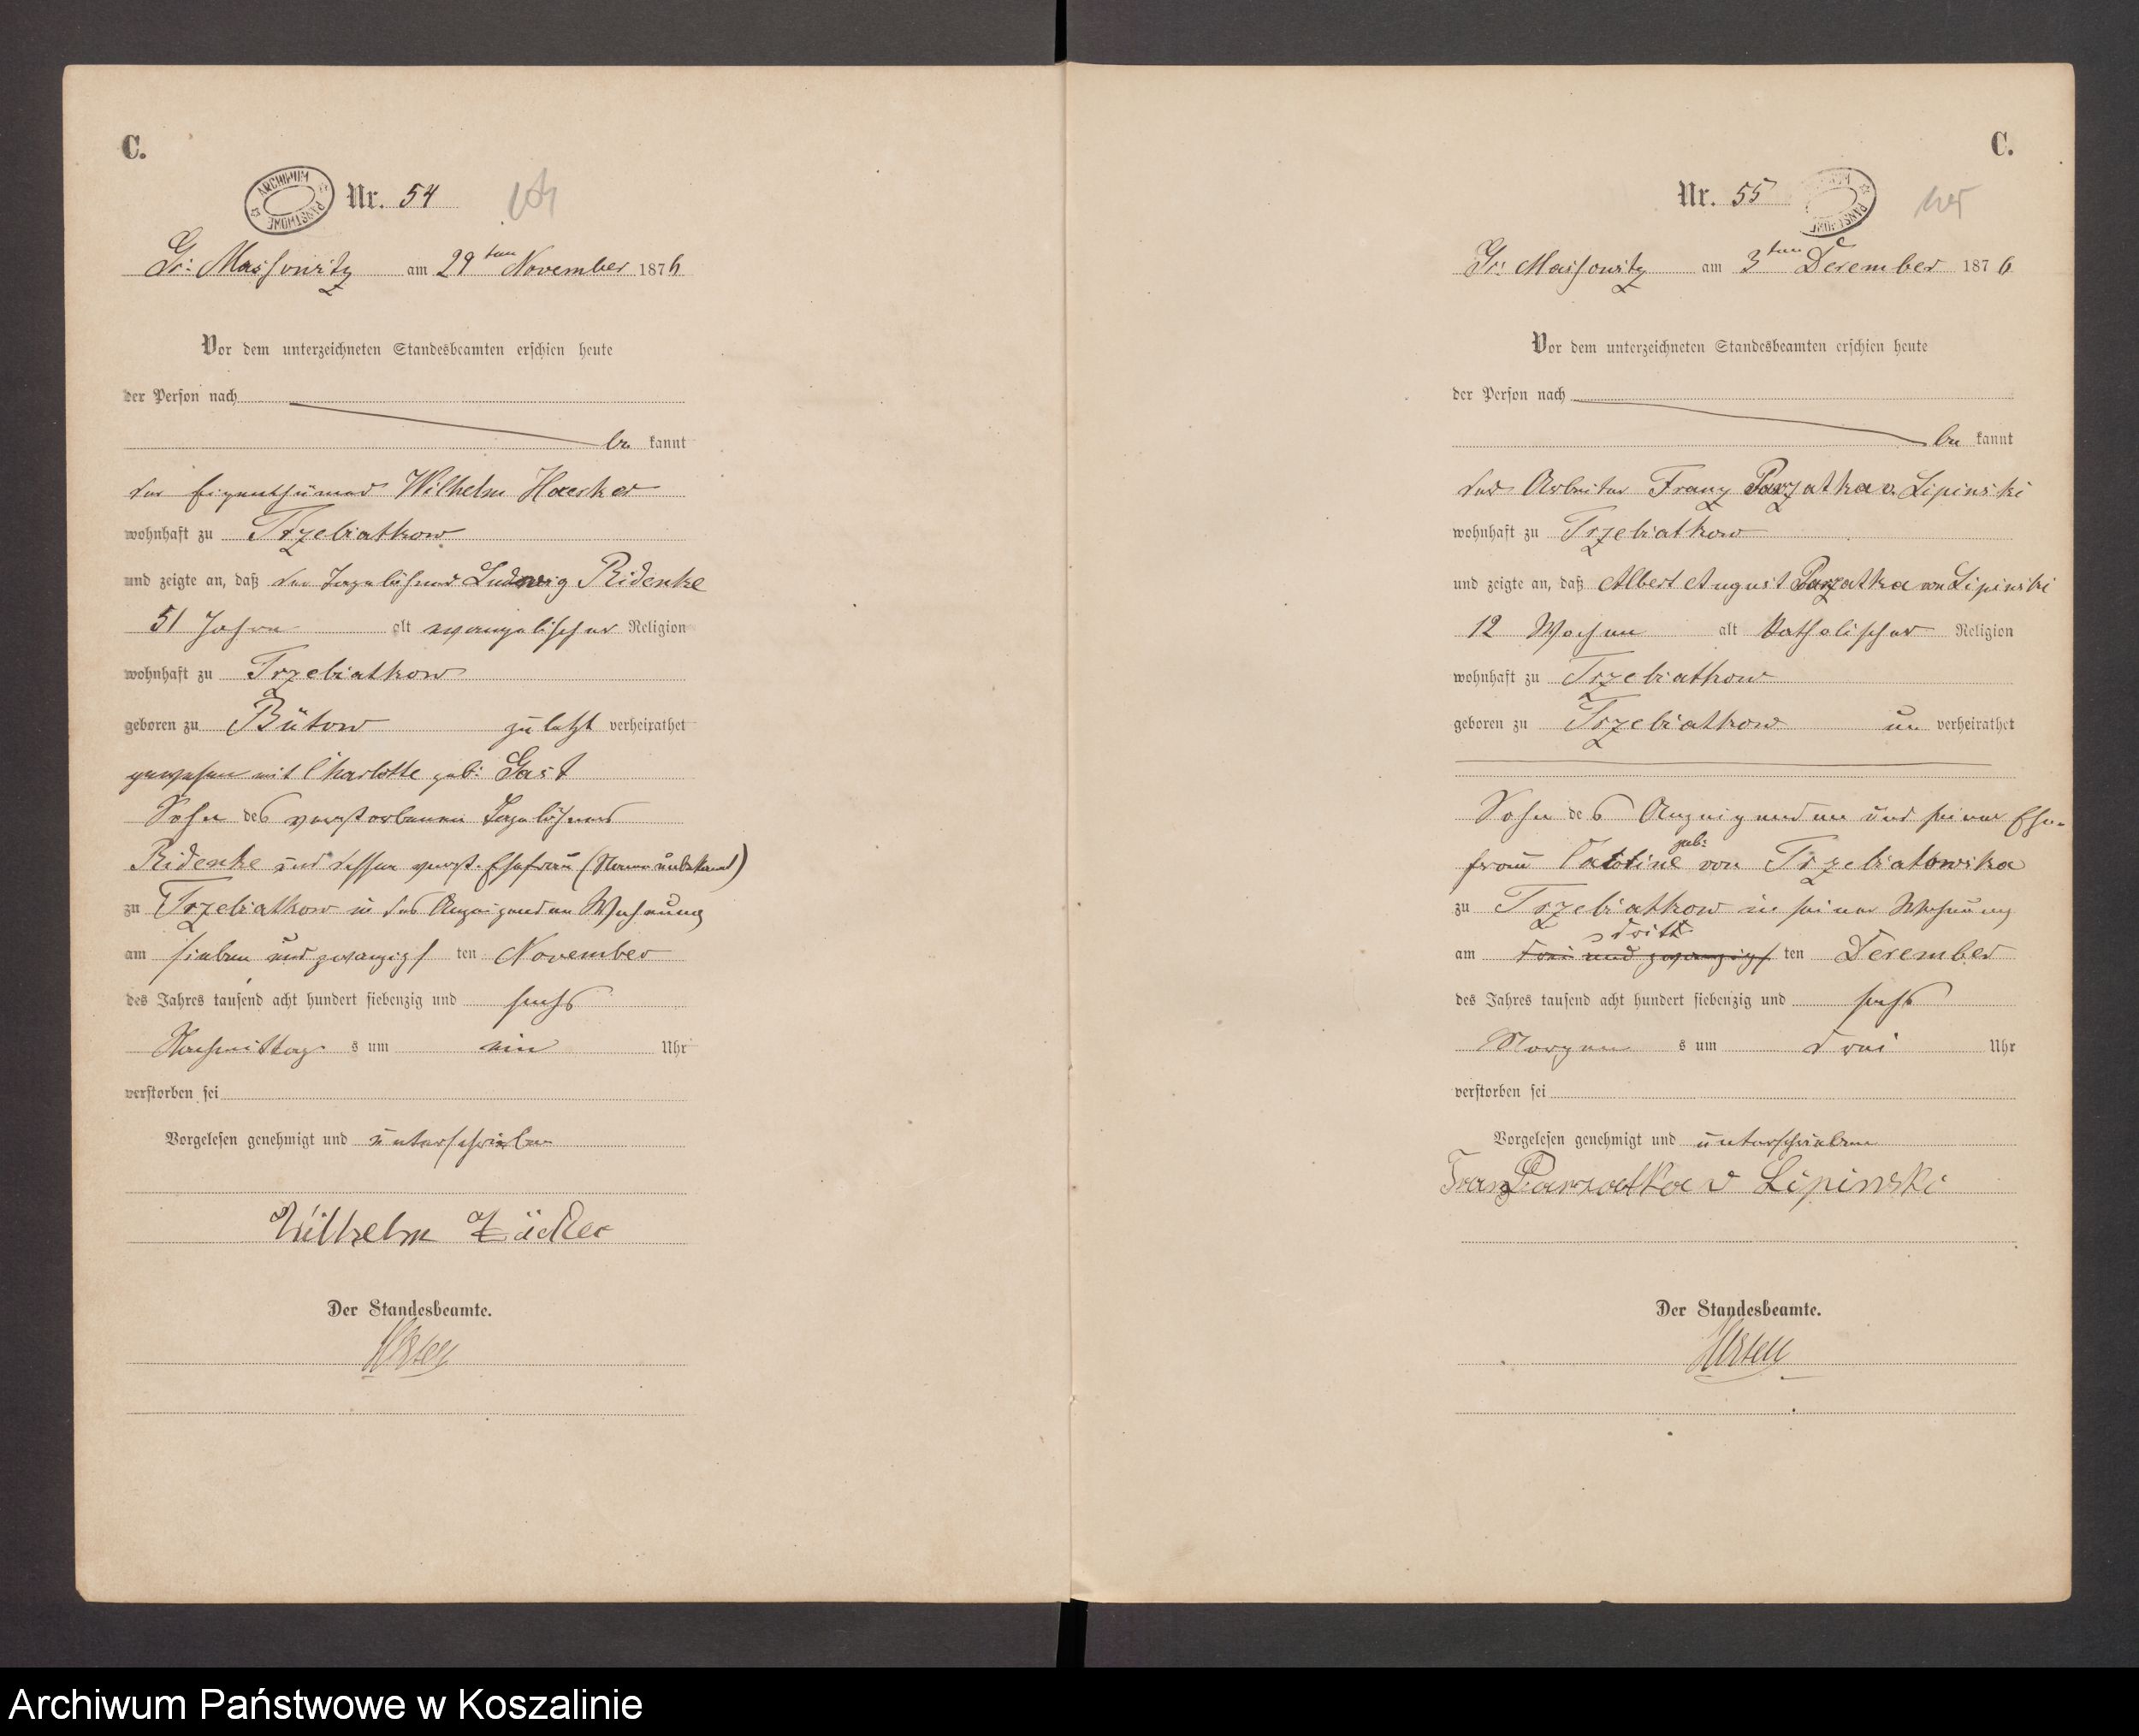 C.
ARCHIWUM PAŃSTWOWE
Nr. 54
Gr: Massowitz am 29ten November 1876
Vor dem unterzeichneten Standesbeamten erschien heute
der Person nach
be kannt
der Eigenthümer Wilhelm Haecker
wohnhaft zu Trzebiatkow
und zeigte an, daß der Tagelöhner Ludwig Ridenke
51 Jahre alt evangelischer Religion
wohnhaft zu Trzebiatkow
geboren zu Bütow zuletzt verheirathet
gewesen mit Charlotte geb: Gast
Sohn des verstorbenen Tagelöhners
Ridenke und dessen verst. Ehefrau (Name unbekannt)
zu Trzebiatkow in des Anzeigenden Wohnung
am sieben und zwanzigs ten November
des Jahres tausend acht hundert siebenzig und sechs
Nachmittag s um ein Uhr
verstorben sei
Vorgelesen genehmigt und unterschrieben
Wilhelm Häcker
Der Standesbeamte.
C.
Nr. 55
Gr: Massowitz am 3ten December 1876
Vor dem unterzeichneten Standesbeamten erschien heute
der Person nach
be kannt
der Arbeiter Franz Parzatka v. Lipinski
wohnhaft zu Trzebiatkow
und zeigte an, daß Albert August Parzatka von Lipinski
12 Wochen alt katholischer Religion
wohnhaft zu Trzebiatkow
geboren zu Trzebiatkow un verheirathet
Sohn des Anzeigenden und seiner Ehe-
frau Caroline geb: von Trzebiatowska
zu Trzebiatkow in seiner Wohnung
dritt
am drei und zwanzigs ten December
des Jahres tausend acht hundert siebenzig und sechs
Morgen s um drei Uhr
verstorben sei
Vorgelesen genehmigt und unterschrieben
Franz Parzatka v Lipinski
Der Standesbeamte.
Archiwum Państwowe w Koszalinie